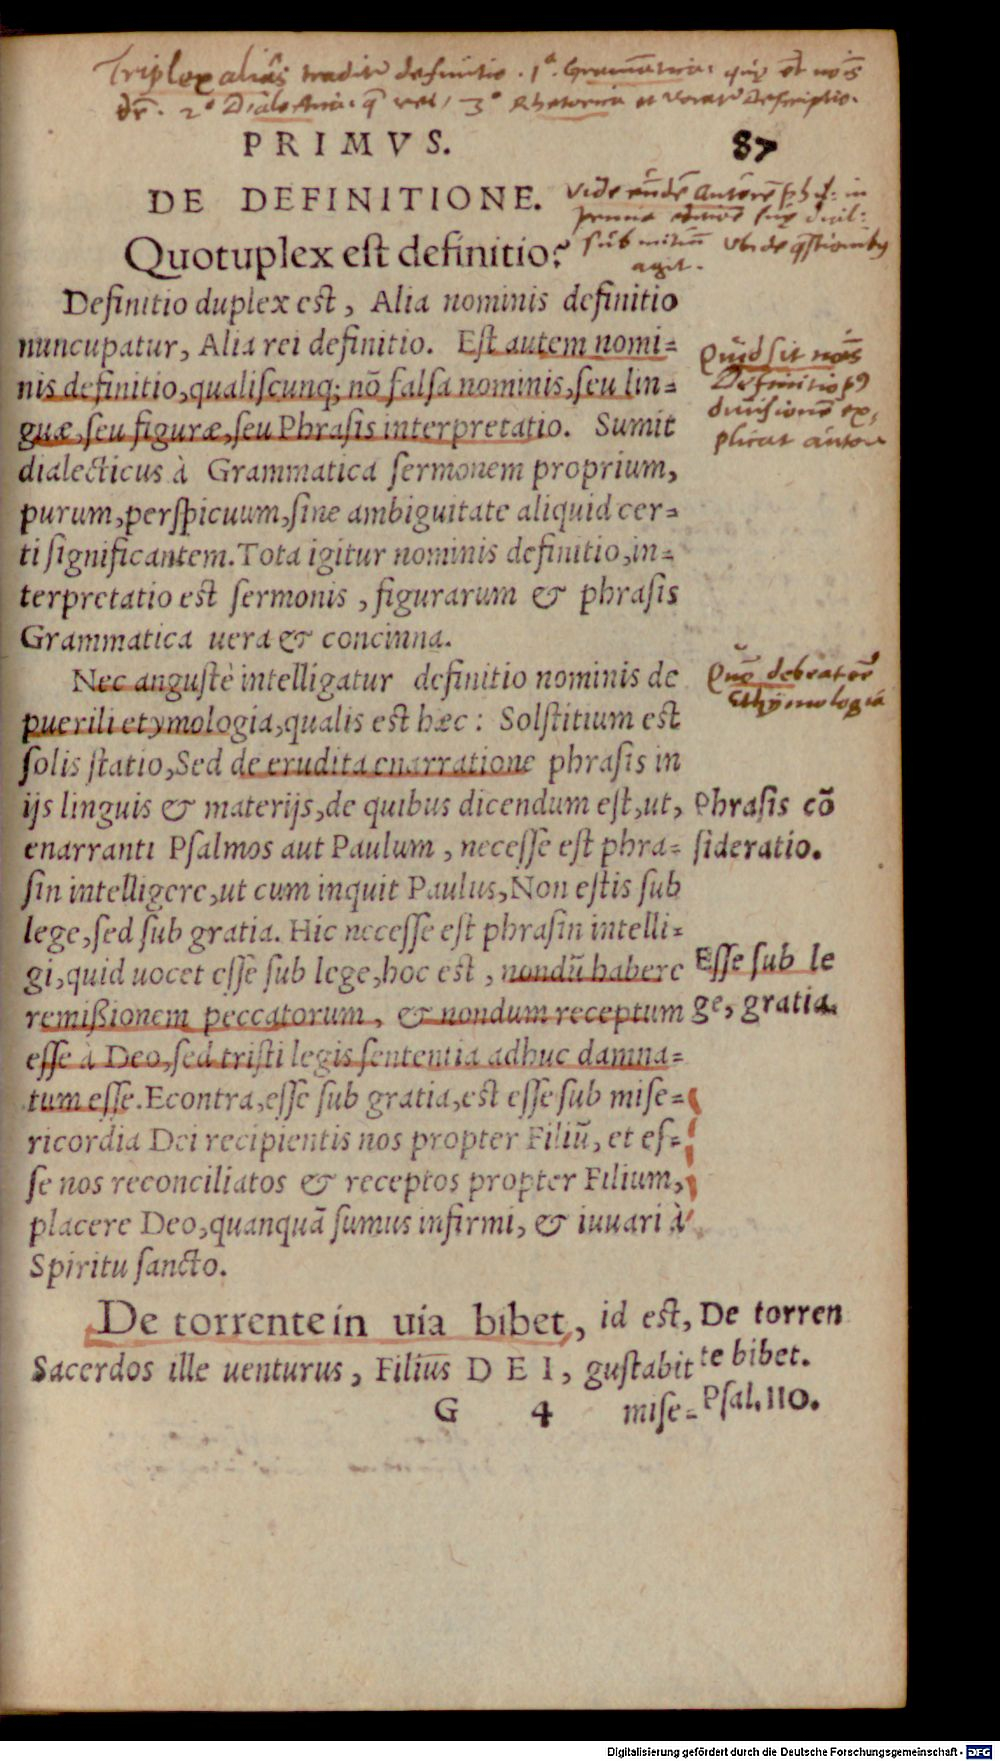 Triplex aliâs traditr definitio. 1ª. Gram̄atica: quę et noīs
dr̄. 2º Dialectica: q̄ rei, 3º Rhetorica et vocatr Descriptio.
PRIMVS.
87
DE DEFINITIONE.
Vide eūdē Autorē in
sub initiū vbi de q̄stionibꝫ
agit.
Quotuplex est definitio?
Definitio duplex est, Alia nominis definitio
nuncupatur, Alia rei definitio. Est autem nomi=
nis definitio, qualiſcunq; nō falſa nominis, ſeu lin=
guæ, ſeu figuræ, ſeu Phraſis interpretatio. Sumit
dialecticus à Grammatica ſermonem proprium,
purum, perſpicuum, ſine ambiguitate aliquid cer=
ti ſignificantem. Tota igitur nominis definitio, in=
terpretatio est ſermonis, figurarum & phraſis
Grammatica uera & concinna.
Quid sit nōis
Definitio
diuisionē ex,
plicat autor
Nec anguſtè intelligatur definitio nominis de
puerili etymologia, qualis est hæc: Solſtitium est
ſolis ſtatio, Sed de erudita enarratione phraſis in
ijs linguis & materijs, de quibus dicendum eſt, ut,
enarranti Pſalmos aut Paulum, neceſſe eſt phra=
ſin intelligere, ut cum inquit Paulus, Non eſtis ſub
lege, ſed ſub gratia. Hic neceſſe eſt phraſin intelli=
gi, quid uocet eſſe ſub lege, hoc eſt, nondū habere
remiſſionem peccatorum, & nondum receptum
eſſe à Deo, ſed triſti legis ſententia adhuc damna=
tum eſſe. Econtra, eſſe ſub gratia, eſt eſſe ſub miſe=
ricordia Dei recipientis nos propter Filiū, et eſ=
ſe nos reconciliatos & receptos propter Filium,
placere Deo, quanquā ſumus infirmi, & iuuari à
Spiritu ſancto.
Quō debeat eē
Ethymologia
Phraſis cō
ſideratio.
Eſſe ſub le
ge, gratia.
De torrente in uia bibet, id eſt,
Sacerdos ille uenturus, Filius DEI, guſtabit
G 4 miſe=
De torren
te bibet.
Pſal. 110.
Digitalisierung gefördert durch die Deutsche Forschungsgemeinschaft - DFG